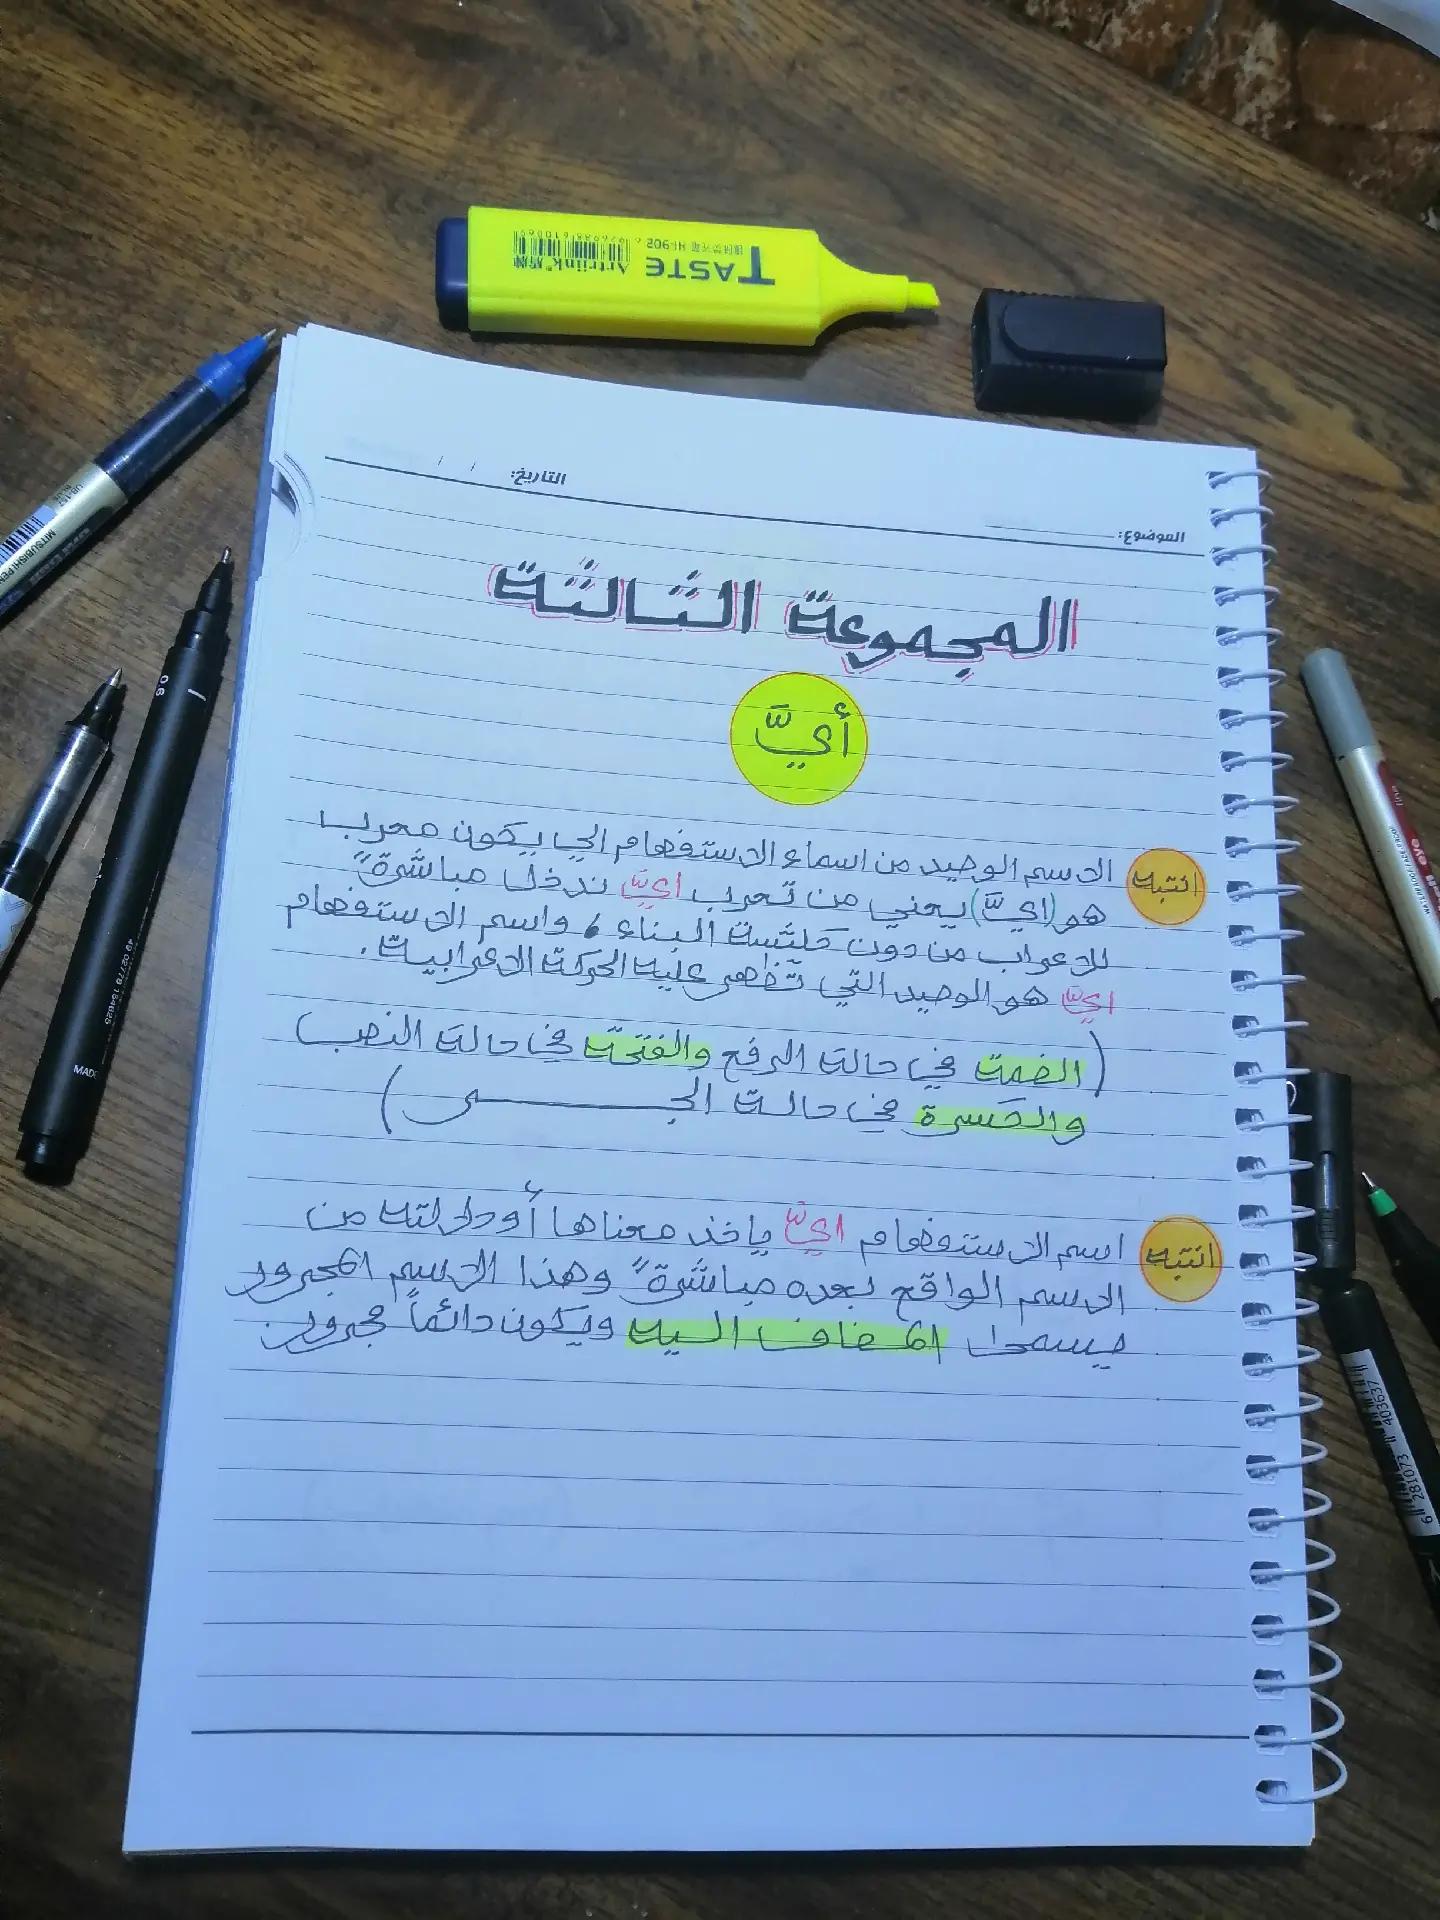 TASTE
HI-902
Artriink
التاريخ: / /
الموضوع:
المجموعة الثالثة
أيّ
انتبه الاسم الوحيد من اسماء الاستفهام الي يكون معرب
هو (ايّ) يعني من تعرب ايّ ندخل مباشرةً
للاعراب من دون كليشة البناء، واسم الاستفهام
ايّ هو الوحيد التي تظهر عليه الحركة الاعرابية.
(الضمة في حالة الرفع والفتحة في حالة النصب
والكسرة في حالة الجــر)
انتبه اسم الاستفهام ايّ ياخذ معناها أو دلالته من
الاسم الواقع بعده مباشرةً وهذا الاسم المجرور
يسمى المضاف اليه ويكون دائماً مجرور
UB-157
BLUE
MITSUBISHI PEN
0.6
49 02778 184625
MADE
fine
eye
6 281073 403637